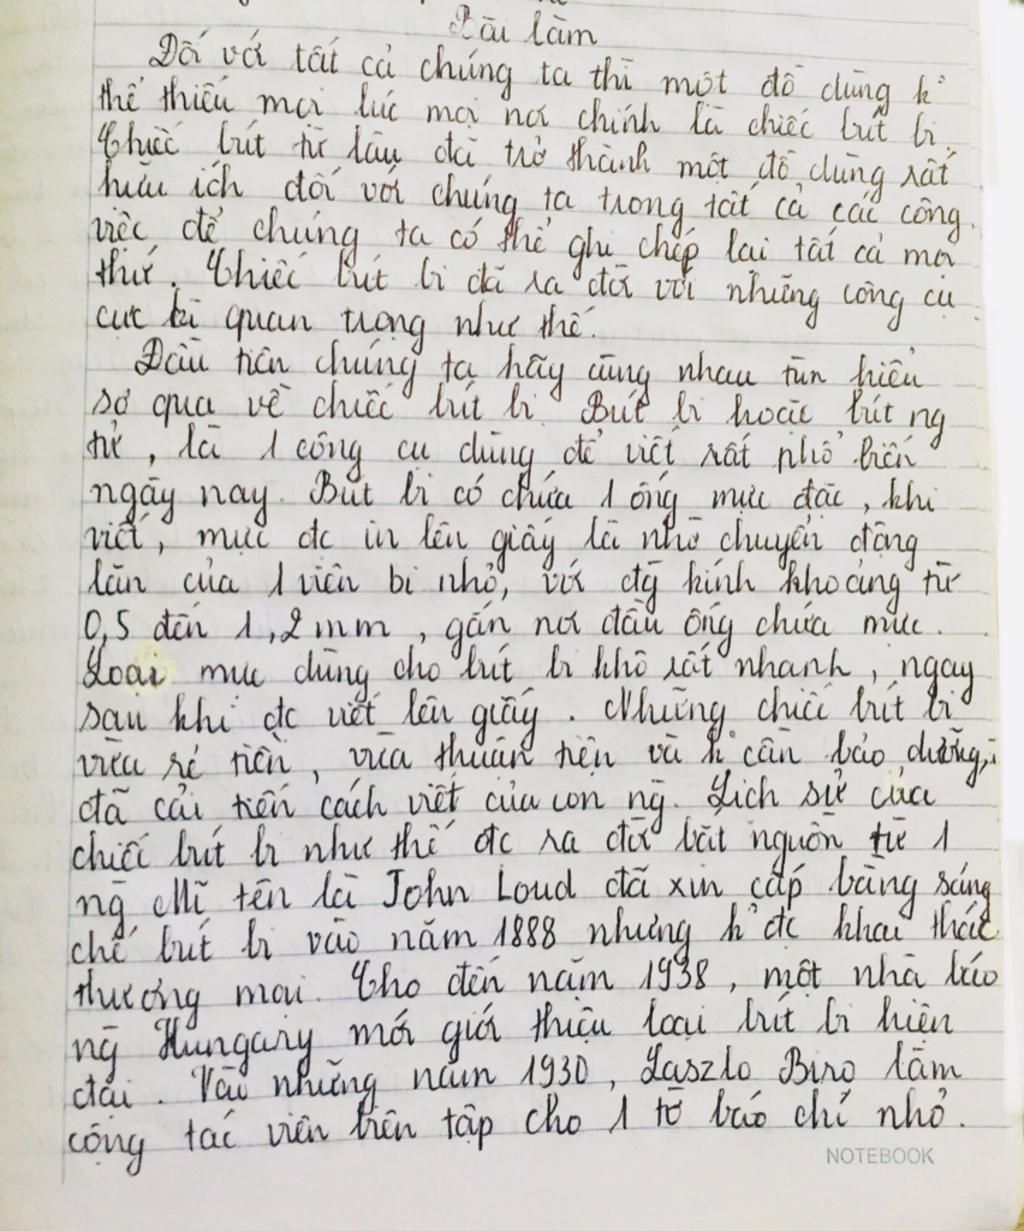 Bài làm
Đối với tất cả chúng ta thì một đồ dùng k°
thể thiếu mọi lúc mọi nơi chính là chiếc bút bi.
Chiếc bút từ lâu đã trở thành một đồ dùng rất
hữu ích đối với chúng ta trong tất cả các công
việc để chúng ta có thể ghi chép lại tất cả mọi
thứ. Chiếc bút bi đã ra đời với những công cụ
cực kì quan trọng như thế.
Đầu tiên chúng ta hãy cùng nhau tìm hiểu
sơ qua về chiếc bút bi. Bút bi hoặc bút ng
tử, là 1 công cụ dùng để viết rất phổ biến
ngày nay. Bút bi có chứa 1 ống mực đặc, khi
viết, mực đc in lên giấy là nhờ chuyển động
lăn của 1 viên bi nhỏ, với đg kính khoảng từ
0,5 đến 1,2 mm, gắn nơi đầu ống chứa mực.
Loại mực dùng cho bút bi khô rất nhanh, ngay
sau khi đc viết lên giấy. Những chiếc bút bi
vừa rẻ tiền, vừa thuận tiện và k° cần bảo dưỡng,
đã cải tiến cách viết của con ng. Lịch sử của
chiếc bút bi như thế đc ra đời bắt nguồn từ 1
ng Mĩ tên là John Loud đã xin cấp bằng sáng
chế bút bi vào năm 1888 nhưng k° đc khai thác
thương mại. Cho đến năm 1938, một nhà báo
ng Hungary mới giới thiệu loại bút bi hiện
đại. Vào những năm 1930, Laszlo Biro làm
cộng tác viên biên tập cho 1 tờ báo chí nhỏ.
NOTEBOOK